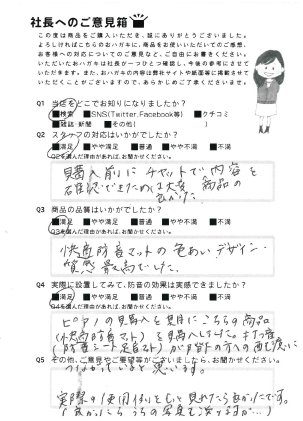 社長へのご意見箱
この度は商品をご購入いただき、誠にありがとうございました。
よろしければこちらのおハガキに、商品をお使いいただいてのご感想、
お客様への対応についてのご意見など、ご自由にお書きください。
いただいたおハガキは社長が一つひとつ確認し、今後の参考にさせて
いただきます。また、おハガキの内容は弊社サイトや紙面等に掲載させて
いただくことがございますので、あらかじめご了承くださいませ。
Q1 当店をどこでお知りになりましたか？
■検索 ■SNS(Twitter,Facebook等) ■クチコミ
■雑誌・新聞 ■その他( )
Q2 スタッフの対応はいかがでしたか？
■満足 ■やや満足 ■普通 ■やや不満 ■不満
Q2を選んだ理由があれば、お聞かせください。
購入前にチャットで内容を
確認できたのは大変
良かった
Q3 商品の品質はいかがでしたか？
■満足 ■やや満足 ■普通 ■やや不満 ■不満
Q3を選んだ理由があれば、お聞かせください。
快適防音マットの色あい デザイン・
質感 最高でした。
Q4 実際に設置してみて、防音の効果は実感できましたか？
■満足 ■やや満足 ■普通 ■やや不満 ■不満
Q4を選んだ理由があれば、お聞かせください。
ピアノの購入を機にこちらの商品
(快適防音マット)を購入しました。
(防音シート 足音マット)が階下の方への配慮に
つながっていると思います。
Q5 その他、ご意見やご要望等がございましたら、お聞かせください。
実際の使用例をもっと見れたら良かったです。
(良かったらうちの写真も送りますが…)